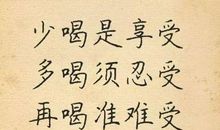 少喝是享受
多喝须忍受
再喝准难受